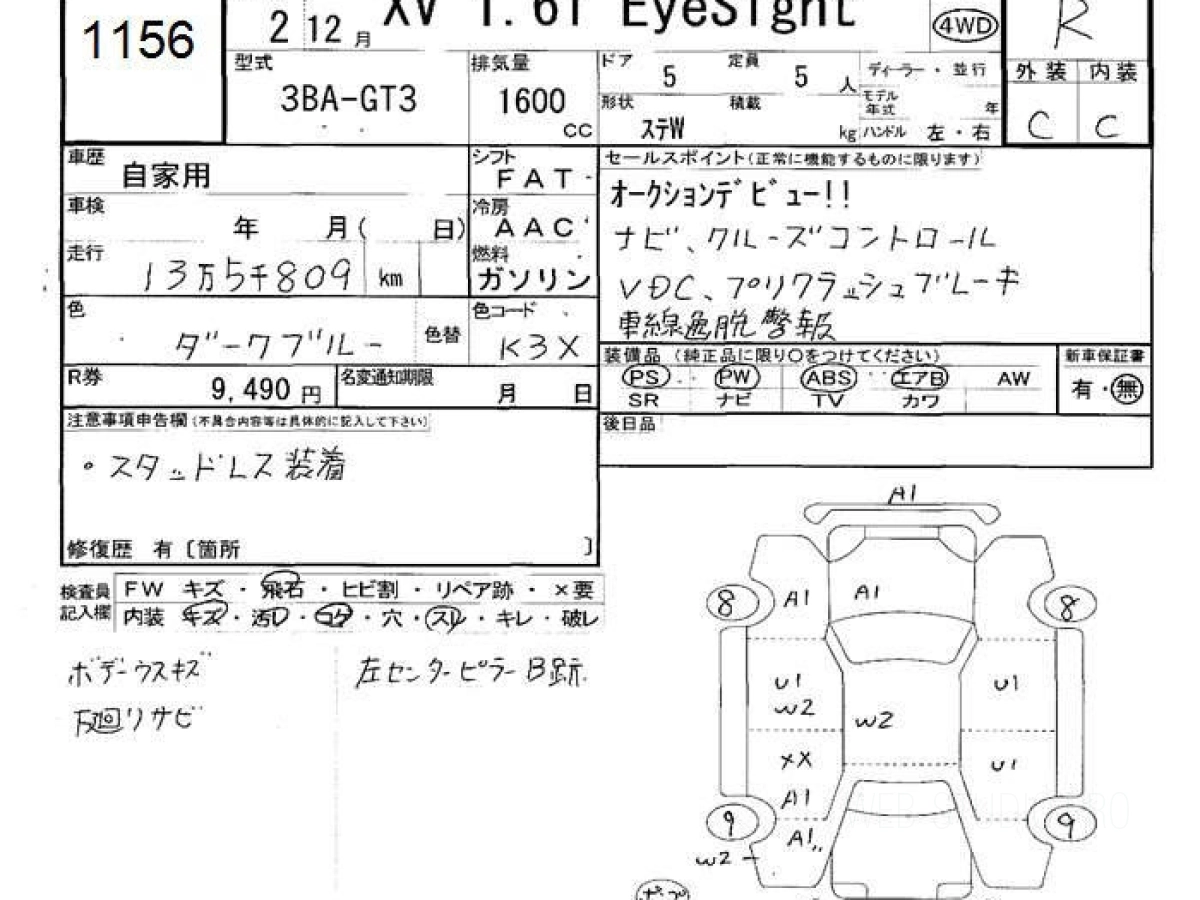 1156
2 12 月
XV 1.6i EyeSight
4WD
R
型式
3BA-GT3
排気量
1600
cc
ドア 5 定員 5 人
形状 ステW 積載 kg
ディーラー・並行
モデル年式 年
ハンドル 左・右
外装 内装
C C
車歴 自家用
シフト FAT
車検 年 月( 日)
冷房 AAC
走行 13万5千809 km
燃料 ガソリン
色 ダークブルー 色替
色コード K3X
R券 9,490 円
名変通知期限 月 日
セールスポイント(正常に機能するものに限ります)
オークションデビュー!!
ナビ、クルーズコントロール
VDC、プリクラッシュブレーキ
車線逸脱警報
装備品 (純正品に限り〇をつけてください)
PS PW ABS エアB AW
SR ナビ TV カワ
新車保証書
有・無
後日品
注意事項申告欄(不具合内容等は具体的に記入して下さい)
・スタッドレス装着
修復歴 有〔箇所 〕
検査員記入欄
FW キズ・飛石・ヒビ割・リペア跡・×要
内装 キズ・汚レ・コゲ・穴・スレ・キレ・破レ
ボデーウスキズ
下廻リサビ
左センターピラーB跡
A1
8 A1 A1 8
U1 U1
W2 W2
XX U1
A1
9 A1 9
W2